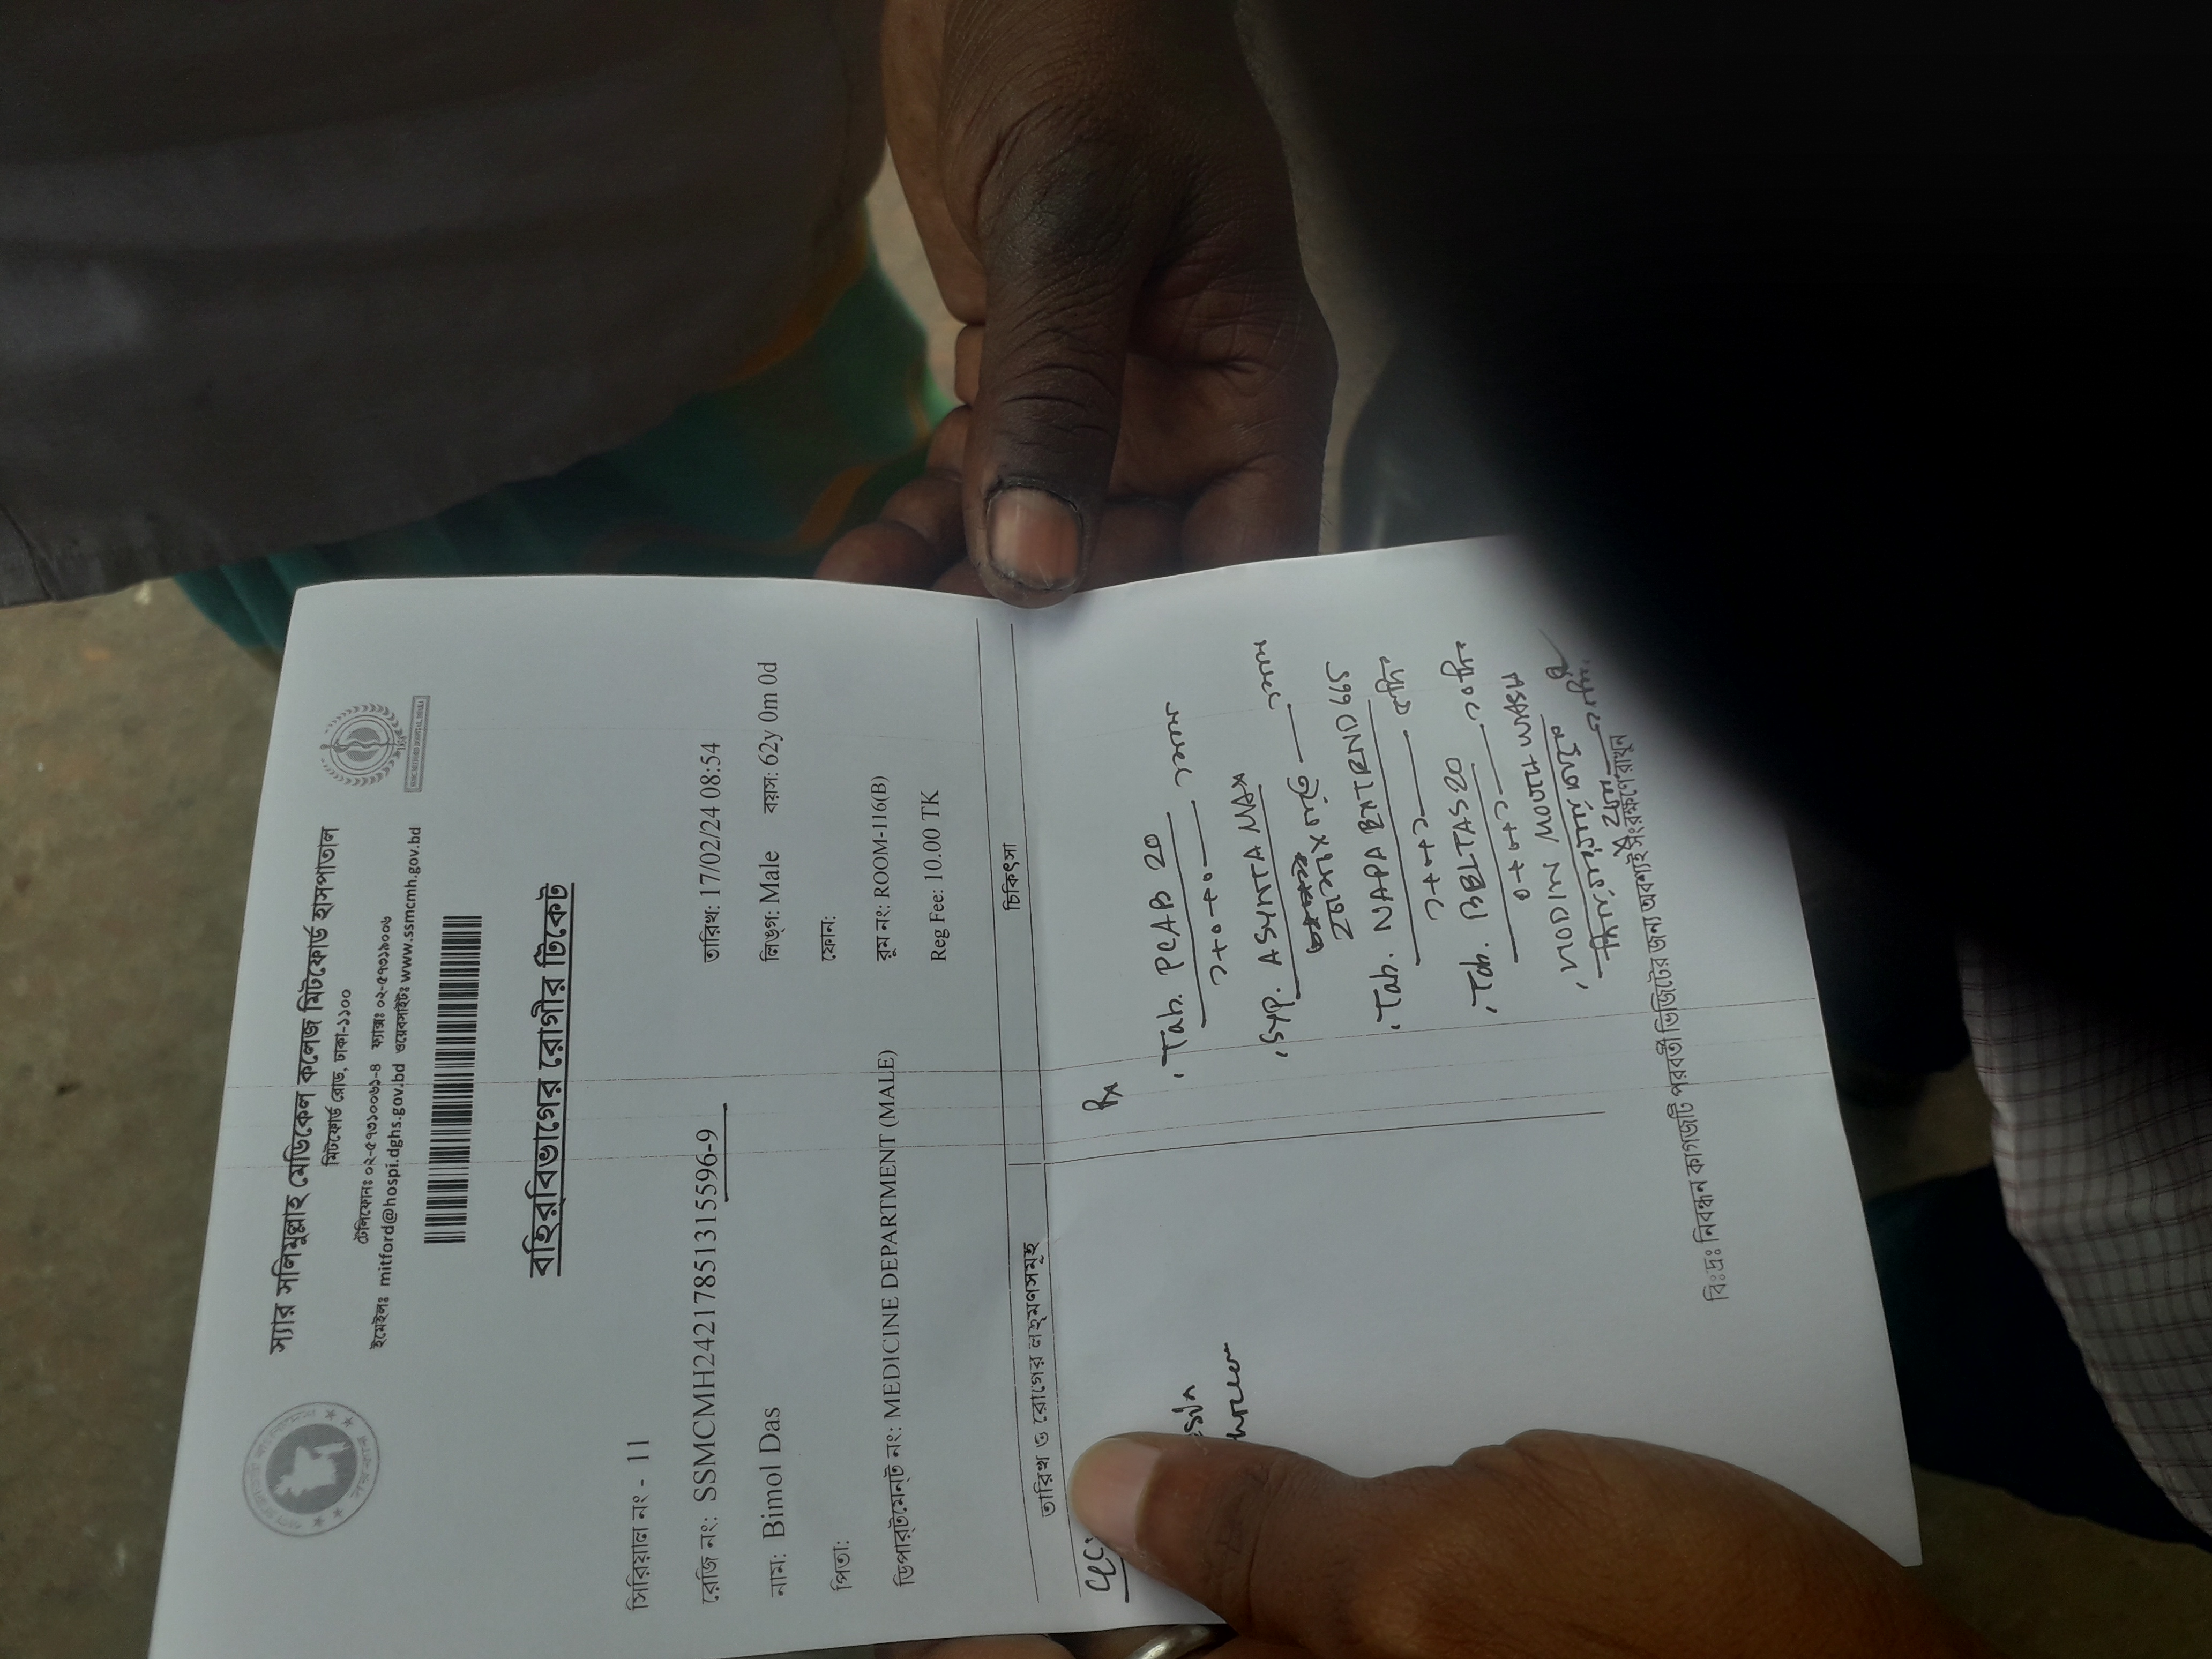 স্যার সলিমুল্লাহ মেডিকেল কলেজ মিটফোর্ড হাসপাতাল
মিটফোর্ড রোড, ঢাকা-১১০০
টেলিফোনঃ ০২-৫৭৩১০০৬১-৪ ফ্যাক্সঃ ০২-৫৭৩১৯০০৬
ইমেইলঃ mitford@hospi.dghs.gov.bd ওয়েবসাইটঃ www.ssmcmh.gov.bd
বহির্বিভাগের রোগীর টিকেট
সিরিয়াল নং - 11
রেজি নং: SSMCMH24217851315596-9
তারিখ: 17/02/24 08:54
নাম: Bimol Das
লিঙ্গ: Male বয়স: 62y 0m 0d
পিতা:
ফোন:
ডিপার্টমেন্ট নং: MEDICINE DEPARTMENT (MALE)
রুম নং: ROOM-116(B)
Reg Fee: 10.00 TK
তারিখ ও রোগের লক্ষ্মণসমূহ
চিকিৎসা
Rx
Tab. PCAB 20
১+০+০ ১মাস
Syp. ASYNTA MAX
১মাস
Tab. NAPA EXTEND 665
১+১+১ ৫দিন
Tab. BELTAS 20
০+০+১ ১০দিন
VIODIN MOUTH WASH
বিঃদ্রঃ নিবন্ধন কাগজটি পরবর্তী ভিজিটের জন্য অবশ্যই সংরক্ষণে রাখুন